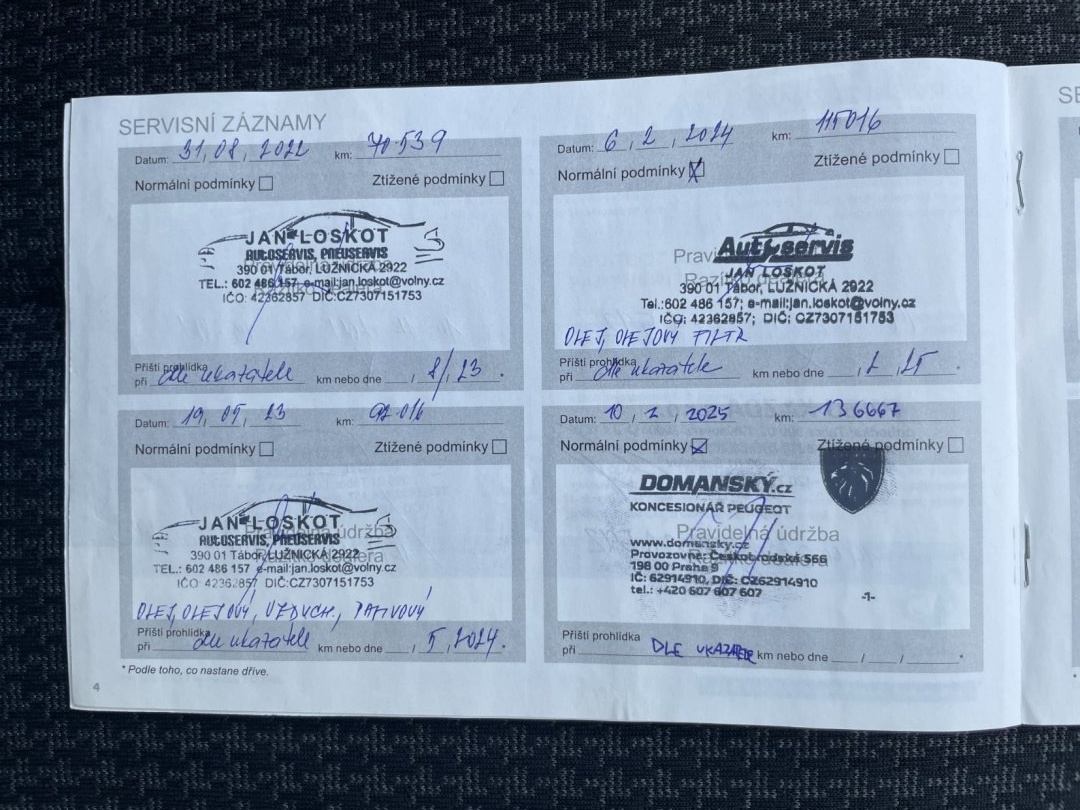 SERVISNÍ ZÁZNAMY
Datum: 31, 08, 2022 km: 70.539
Normální podmínky Ztížené podmínky
JAN LOSKOT
AUTOSERVIS, PNEUSERVIS
390 01 Tábor, LUŽNICKÁ 2922
TEL.: 602 486 157 e-mail:jan.loskot@volny.cz
IČO: 42362857 DIČ:CZ7307151753
Příští prohlídka
při dle ukazatele km nebo dne / 8/23 .
Datum: 19, 05, 23 km: 92 016
Normální podmínky Ztížené podmínky
Pravidelná údržba
JAN LOSKOT
AUTOSERVIS, PNEUSERVIS
390 01 Tábor, LUŽNICKÁ 2922
TEL.: 602 486 157 e-mail:jan.loskot@volny.cz
IČO: 42362857 DIČ:CZ7307151753
OLEJ, OLEJOVÝ, VZDUCH.,
Příští prohlídka
při dle ukazatele km nebo dne / 5 / 2024 .
* Podle toho, co nastane dříve.
4
Datum: 6, 2, 2024 km: 115016
Normální podmínky Ztížené podmínky
Autoservis
JAN LOSKOT
390 01 Tábor, LUŽNICKÁ 2922
Tel.:602 486 157; e-mail:jan.loskot@volny.cz
IČO: 42362857; DIČ: CZ7307151753
OLEJ, OLEJOVÝ FILTR
Příští prohlídka
při dle ukazatele km nebo dne , 2 , 25 .
Datum: 10 / 2 / 2025 km: 136667
Normální podmínky Ztížené podmínky
DOMANSKÝ.cz
KONCESIONÁŘ PEUGEOT
Pravidelná údržba
www.domansky.cz
Provozovna: Českobrodská 566
198 00 Praha 9
IČ: 62914910, DIČ: CZ62914910
tel.: +420 607 607 607
-1-
Příští prohlídka
při DLE UKAZATELE km nebo dne / / .